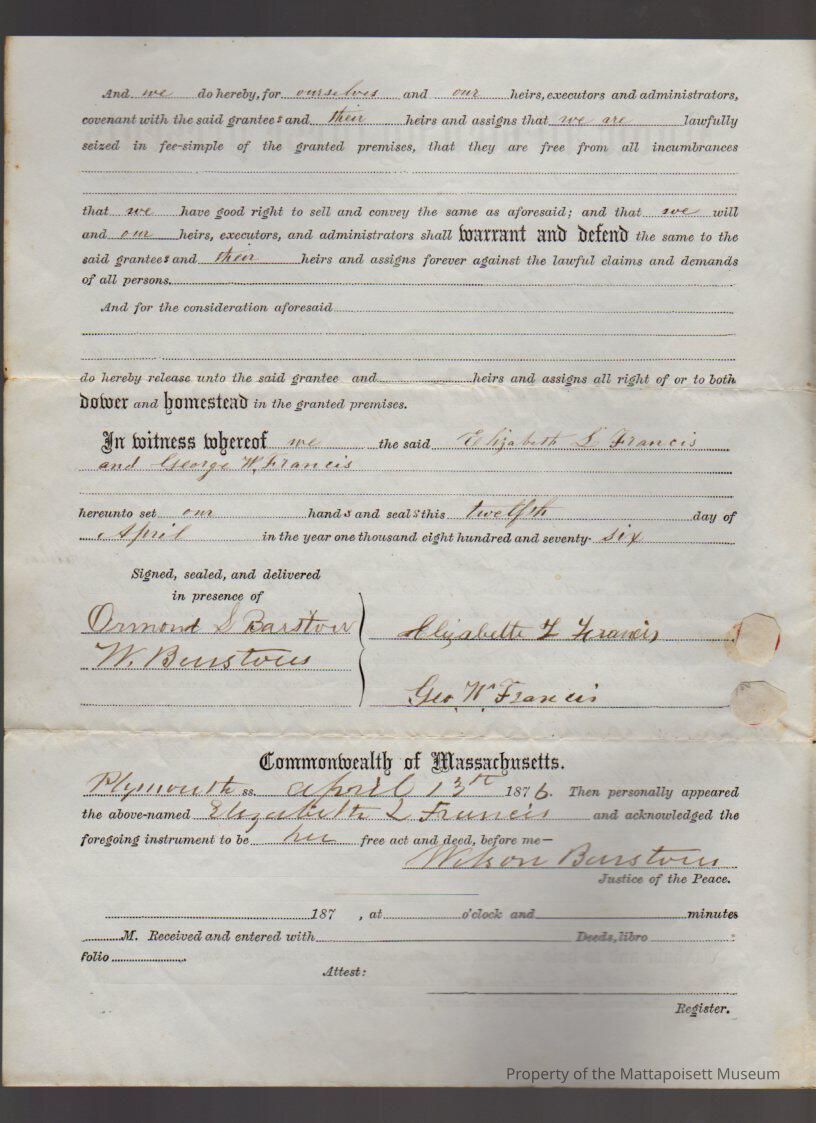 And we do hereby, for ourselves and our heirs, executors and administrators,
covenant with the said grantees and their heirs and assigns that we are lawfully
seized in fee-simple of the granted premises, that they are free from all incumbrances
that we have good right to sell and convey the same as aforesaid; and that we will
and our heirs, executors, and administrators shall warrant and defend the same to the
said grantees and their heirs and assigns forever against the lawful claims and demands
of all persons.
And for the consideration aforesaid
do hereby release unto the said grantee and heirs and assigns all right of or to both
dower and homestead in the granted premises.
In witness whereof we the said Elizabeth L Francis
and George W. Francis
hereunto set our hands and seals this twelfth day of
April in the year one thousand eight hundred and seventy-six
Signed, sealed, and delivered
in presence of
Ormond S Barstow
W. Barstow
Elizabeth L Francis
Geo. W. Francis
Commonwealth of Massachusetts.
Plymouth ss. April 13th 1876. Then personally appeared
the above-named Elizabeth L Francis and acknowledged the
foregoing instrument to be her free act and deed, before me—
Wilson Barstow
Justice of the Peace.
187 , at o'clock and minutes
M. Received and entered with Deeds, libro
folio
Attest:
Register.
Property of the Mattapoisett Museum